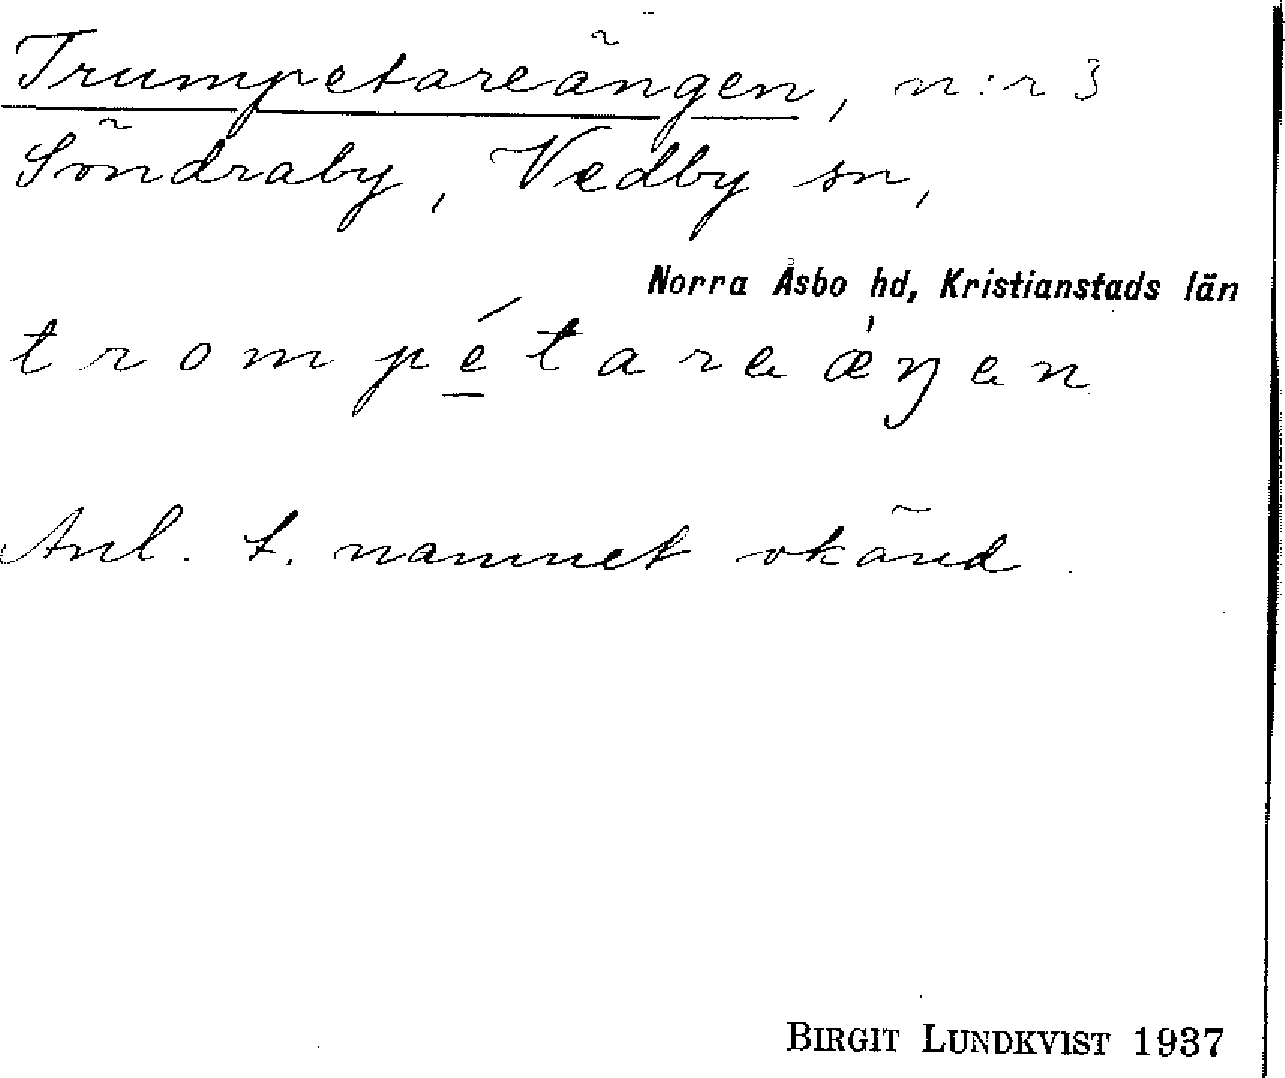 Trumpetareängen, n:r 3
Söndraby, Vedby sn,
Norra Åsbo hd, Kristianstads län
trompétareæ̀ŋen
Anl. t. namnet okänd.
BIRGIT LUNDKVIST 1937